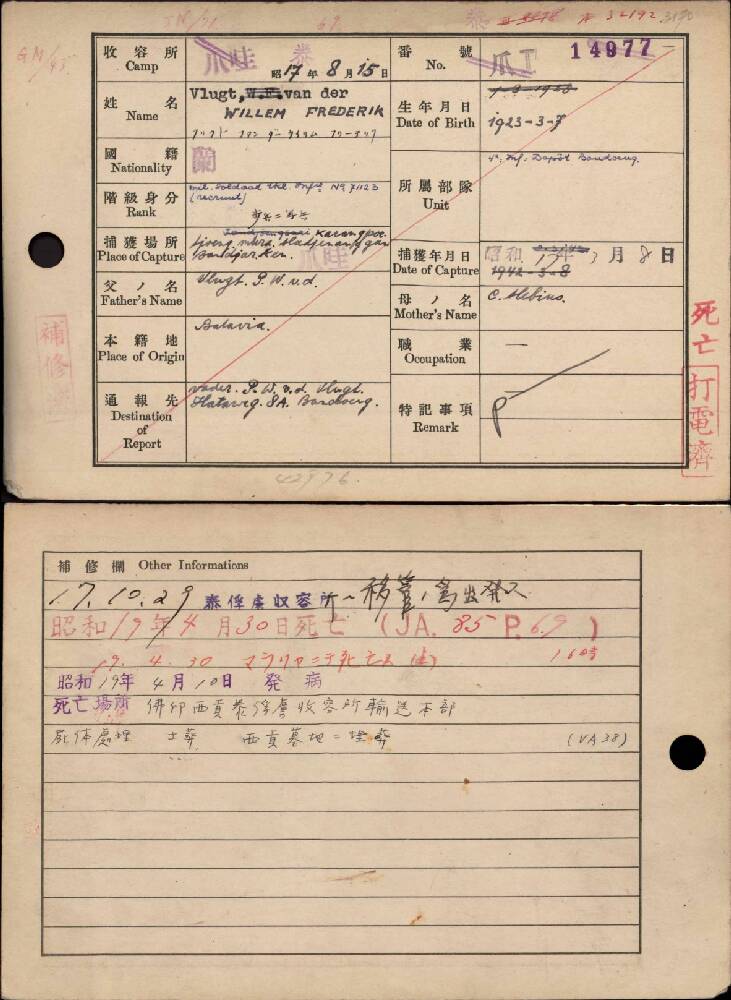 JM/71 69 泰 II 3898 A 32192 3190
GM/45
收容所 Camp 爪哇 泰 昭17年8月15日 番號 No. 爪 I 14977
姓名 Name Vlugt, W.F. van der
WILLEM FREDERIK
生年月日 Date of Birth 7-3-1923
1923-3-7
國籍 Nationality 蘭
階級身分 Rank mil. soldaat Inf. No 71123
(recruut)
所屬部隊 Unit Inf. Depôt Bandoeng.
捕獲場所 Place of Capture
捕獲年月日 Date of Capture 昭和17年3月8日
1942-3-8
爪哇
父ノ名 Father's Name Vlugt. P. W. v.d.
母ノ名 Mother's Name C. Mebius.
本籍地 Place of Origin Batavia.
職業 Occupation —
通報先 Destination of Report vader. P. W. v.d. Vlugt.
8A. Bandoeng.
特記事項 Remark
死亡
打電濟
補修濟
42976.
補修欄 Other Informations
17.10.29 泰俘虜収容所ヘ移管ノ爲出発ス
昭和19年4月30日死亡 (JA. 85 P. 69)
19.4.30 マラリヤニテ死亡ス 160時
昭和19年4月10日 発病
死亡場所 佛印西貢泰俘虜收容所輸送本部
死体處理 土葬 西貢墓地ニ埋葬 (VA38)